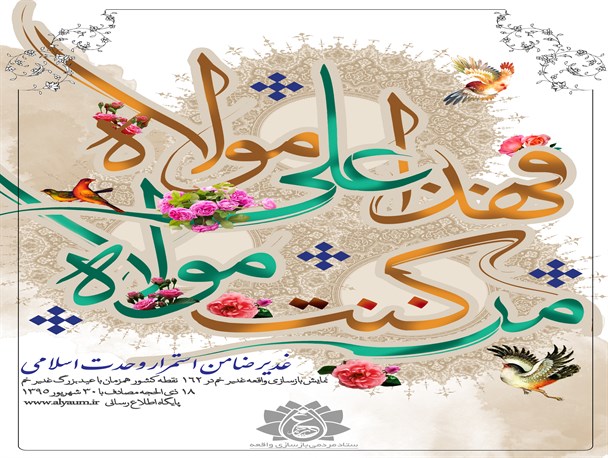 من کنت مولاه
فهذا علی مولاه
غدیر ضامن استمرار وحدت اسلامی
نمایش بازسازی واقعه غدیر خم در ۱۶۲ نقطه کشور همزمان با عید بزرگ غدیر خم
۱۸ ذی الحجه مصادف با ۳۰ شهریور ۱۳۹۵
پایگاه اطلاع رسانی www.alyaum.ir
ستاد مردمی بازسازی واقعه